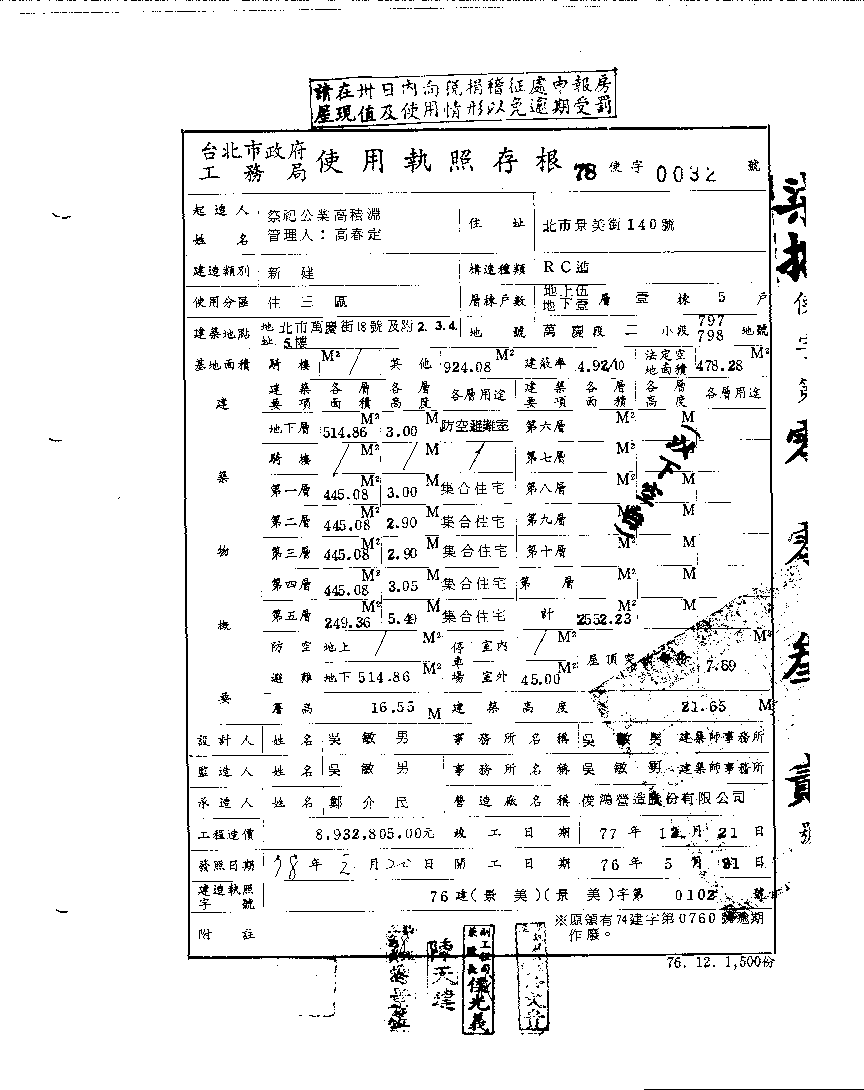 請在卅日內向稅捐稽征處申報房
屋現值及使用情形以免逾期受罰
台北市政府
工務局
使用執照存根 78 使字 0032 號
起造人 祭祀公業高積淵 住址 北市景美街140號
姓名 管理人:高春定
建造類別 新建 構造種類 RC造
使用分區 住三區 層棟戶數 地上伍 地下壹 層 壹 棟 5 戶
建築地點 地址 北市萬慶街18號及附2.3.4.5樓 地號 萬慶段二小段 797 798 地號
基地面積 騎樓 M² / 其他 924.08 M² 建蔽率 4.92/10 法定空地面積 478.28 M²
建築物概要
建築要項 各層面積 各層高度 各層用途 建築要項 各層面積 各層高度 各層用途
地下層 514.86 M² 3.00 M 防空避難室 第六層 M² M
騎樓 / M² / M 第七層 M² M
第一層 445.08 M² 3.00 M 集合住宅 第八層 M² M
第二層 445.08 M² 2.90 M 集合住宅 第九層 M² M
第三層 445.08 M² 2.90 M 集合住宅 第十層 M² M
第四層 445.08 M² 3.05 M 集合住宅 第 層 M² M
第五層 249.36 M² 5.40 M 集合住宅 計 2552.23 M² M
(以下空白)
防空避難 地上 / M² 停車場 室內 / M² 屋頂突 7.69 M²
地下 514.86 M² 室外 45.00 M²
層高 16.55 M 建築高度 21.65 M
設計人 姓名 吳敏男 事務所名稱 吳敏男 建築師事務所
監造人 姓名 吳敏男 事務所名稱 吳敏男 建築師事務所
承造人 姓名 鄭介民 營造廠名稱 俊鴻營造股份有限公司
工程造價 8,932,805.00元 竣工日期 77年12月21日
發照日期 78年2月20日 開工日期 76年5月21日
建造執照字號 76建(景美)(景美)字第 0102 號
附註 ※原領有74建字第0760號逾期作廢。
76.12.1,500份
陳天
使字第零零叁貳號